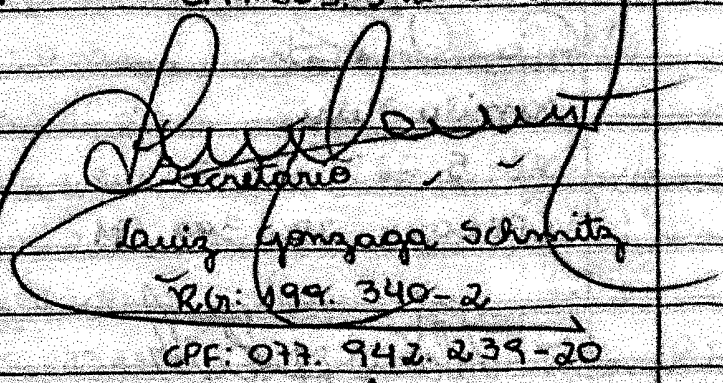 Secretário
Lauiz Gonzaga Schmitz
RG: 199. 340-2
CPF: 077. 942. 239-20